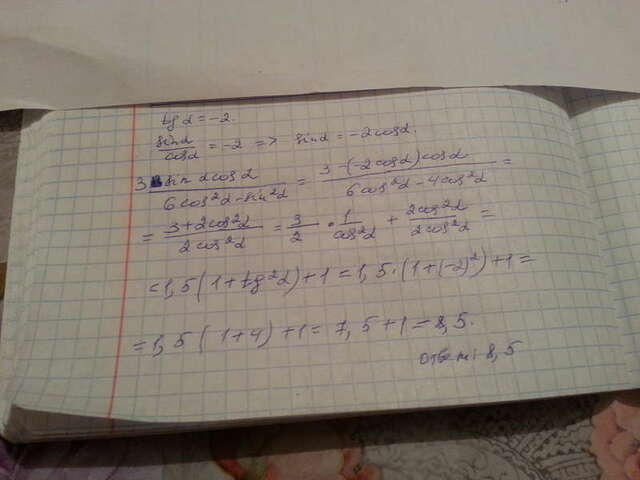 tg α = -2.
sinα/cosα = -2 => sinα = -2cosα.
3 - sinα cosα / 6cos²α - sin²α = 3 - (-2cosα)cosα / 6cos²α - 4cos²α =
= 3+2cos²α / 2cos²α = 3/2 · 1/cos²α + 2cos²α / 2cos²α =
= 1,5(1+tg²α)+1 = 1,5·(1+(-2)²)+1 =
= 1,5(1+4)+1 = 7,5+1 = 8,5.
Ответ: 8,5